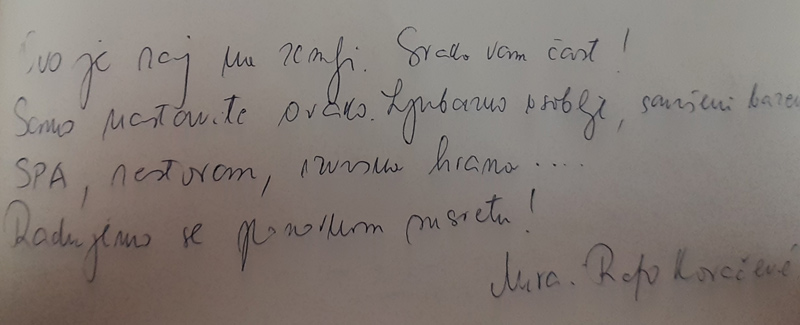 Ovo je raj na zemlji. Svako vam čast!
Samo nastavite ovako. Ljubazno osoblje, savršeni bazeni
SPA, restoran, izvrsna hrana....
Radujemo se ponovnom susretu!
Mira. Kovačević